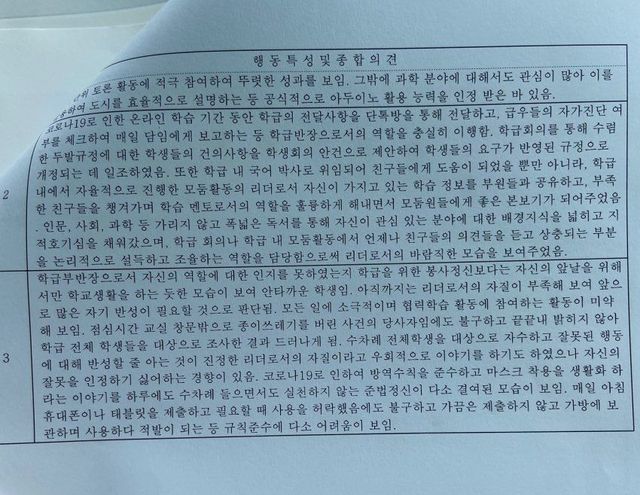 행 동 특 성 및 종 합 의 견
토론 활동에 적극 참여하여 뚜렷한 성과를 보임. 그밖에 과학 분야에 대해서도 관심이 많아 이를
도시를 효율적으로 설명하는 등 공식적으로 아두이노 활용 능력을 인정 받은 바 있음.
코로나19로 인한 온라인 학습 기간 동안 학급의 전달사항을 단톡방을 통해 전달하고, 급우들의 자가진단 여
부를 체크하여 매일 담임에게 보고하는 등 학급반장으로서의 역할을 충실히 이행함. 학급회의를 통해 수렴
한 두발규정에 대한 학생들의 건의사항을 학생회의 안건으로 제안하여 학생들의 요구가 반영된 규정으로
개정되는 데 일조하였음. 또한 학급 내 국어 박사로 위임되어 친구들에게 도움이 되었을 뿐만 아니라, 학급
2
내에서 자율적으로 진행한 모둠활동의 리더로서 자신이 가지고 있는 학습 정보를 부원들과 공유하고, 부족
한 친구들을 챙겨가며 학습 멘토로서의 역할을 훌륭하게 해내면서 모둠원들에게 좋은 본보기가 되어주었음
. 인문, 사회, 과학 등 가리지 않고 폭넓은 독서를 통해 자신이 관심 있는 분야에 대한 배경지식을 넓히고 지
적호기심을 채워갔으며, 학급 회의나 학급 내 모둠활동에서 언제나 친구들의 의견들을 듣고 상충되는 부분
을 논리적으로 설득하고 조율하는 역할을 담당함으로써 리더로서의 바람직한 모습을 보여주었음.
학급부반장으로서 자신의 역할에 대한 인지를 못하였는지 학급을 위한 봉사정신보다는 자신의 앞날을 위해
서만 학교생활을 하는 듯한 모습이 보여 안타까운 학생임. 아직까지는 리더로서의 자질이 부족해 보여 앞으
로 많은 자기 반성이 필요할 것으로 판단됨. 모든 일에 소극적이며 협력학습 활동에 참여하는 활동이 미약
해 보임. 점심시간 교실 창문밖으로 종이쓰레기를 버린 사건의 당사자임에도 불구하고 끝끝내 밝히지 않아
학급 전체 학생들을 대상으로 조사한 결과 드러나게 됨. 수차례 전체학생을 대상으로 자수하고 잘못된 행동
3
에 대해 반성할 줄 아는 것이 진정한 리더로서의 자질이라고 우회적으로 이야기를 하기도 하였으나 자신의
잘못을 인정하기 싫어하는 경향이 있음. 코로나19로 인하여 방역수칙을 준수하고 마스크 착용을 생활화 하
라는 이야기를 하루에도 수차례 들으면서도 실천하지 않는 준법정신이 다소 결여된 모습이 보임. 매일 아침
휴대폰이나 태블릿을 제출하고 필요할 때 사용을 허락했음에도 불구하고 가끔은 제출하지 않고 가방에 보
관하며 사용하다 적발이 되는 등 규칙준수에 다소 어려움이 보임.